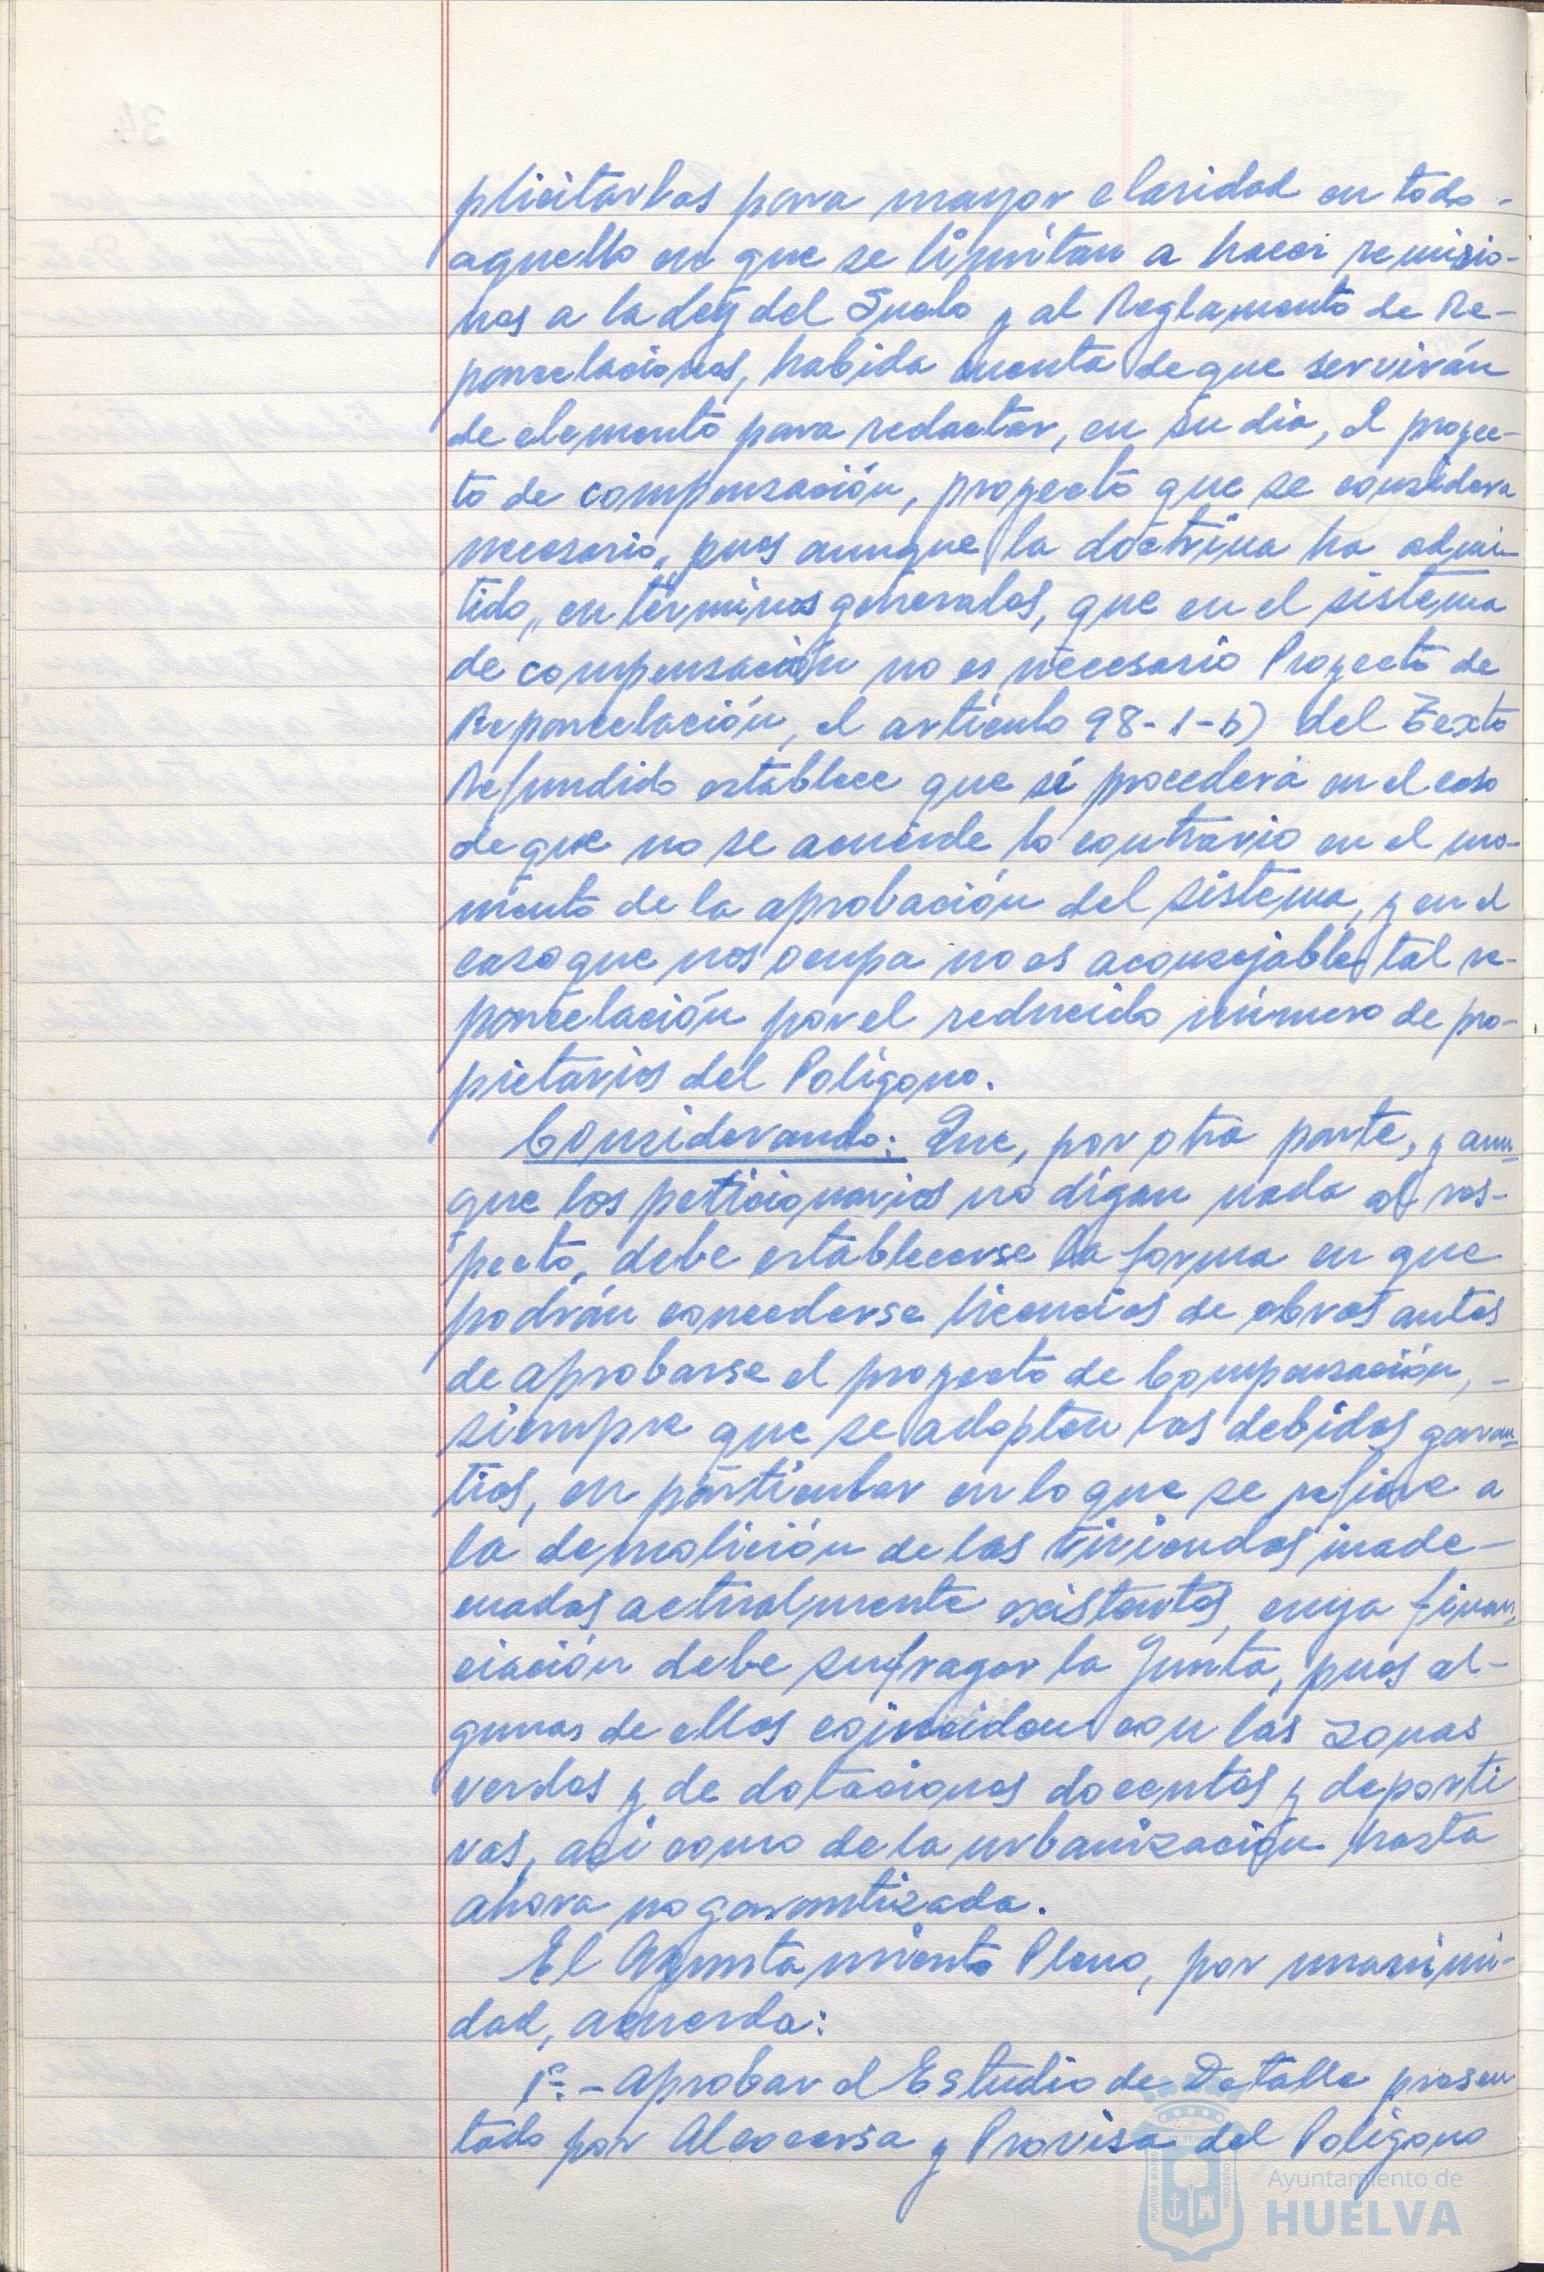 plicitarlas para mayor claridad en todo -
aquello en que se limitan a hacer remisio-
nes a la Ley del Suelo y al Reglamento de Re-
parcelaciones, habida cuenta de que servirán
de elemento para redactar, en su dia, el proyec-
to de compensación, proyecto que se considera
necesario, pues aunque la doctrina ha admi-
tido, en términos generales, que en el sistema
de compensación no es necesario Proyecto de
Reparcelación, el artículo 98-1-b) del Texto
Refundido establece que sí procederá en el caso
de que no se acuerde lo contrario en el mo-
mento de la aprobación del sistema, y en el
caso que nos ocupa no es aconsejable tal re-
parcelación por el reducido número de pro-
pietarios del Polígono.
Considerando: Que, por otra parte, y aun-
que los peticionarios no digan nada al res-
pecto, debe establecerse la forma en que
podrán concederse licencias de obras antes
de aprobarse el proyecto de Compensación, -
siempre que se adopten las debidas garan-
tias, en particular en lo que se refiere a
la demolición de las viviendas inade-
cuadas actualmente existentes, cuya finan-
ciación debe sufragar la Junta, pues al-
gunas de ellas coinciden con las zonas
verdes y de dotaciones docentes y deporti
vas, asi como de la urbanización hasta
ahora no garantizada.
El Ayuntamiento Pleno, por unanimi-
dad, acuerda:
1º.- Aprobar el Estudio de Detalle presen
tado por Alcocersa y Provisa del Polígono
Ayuntamiento de
HUELVA